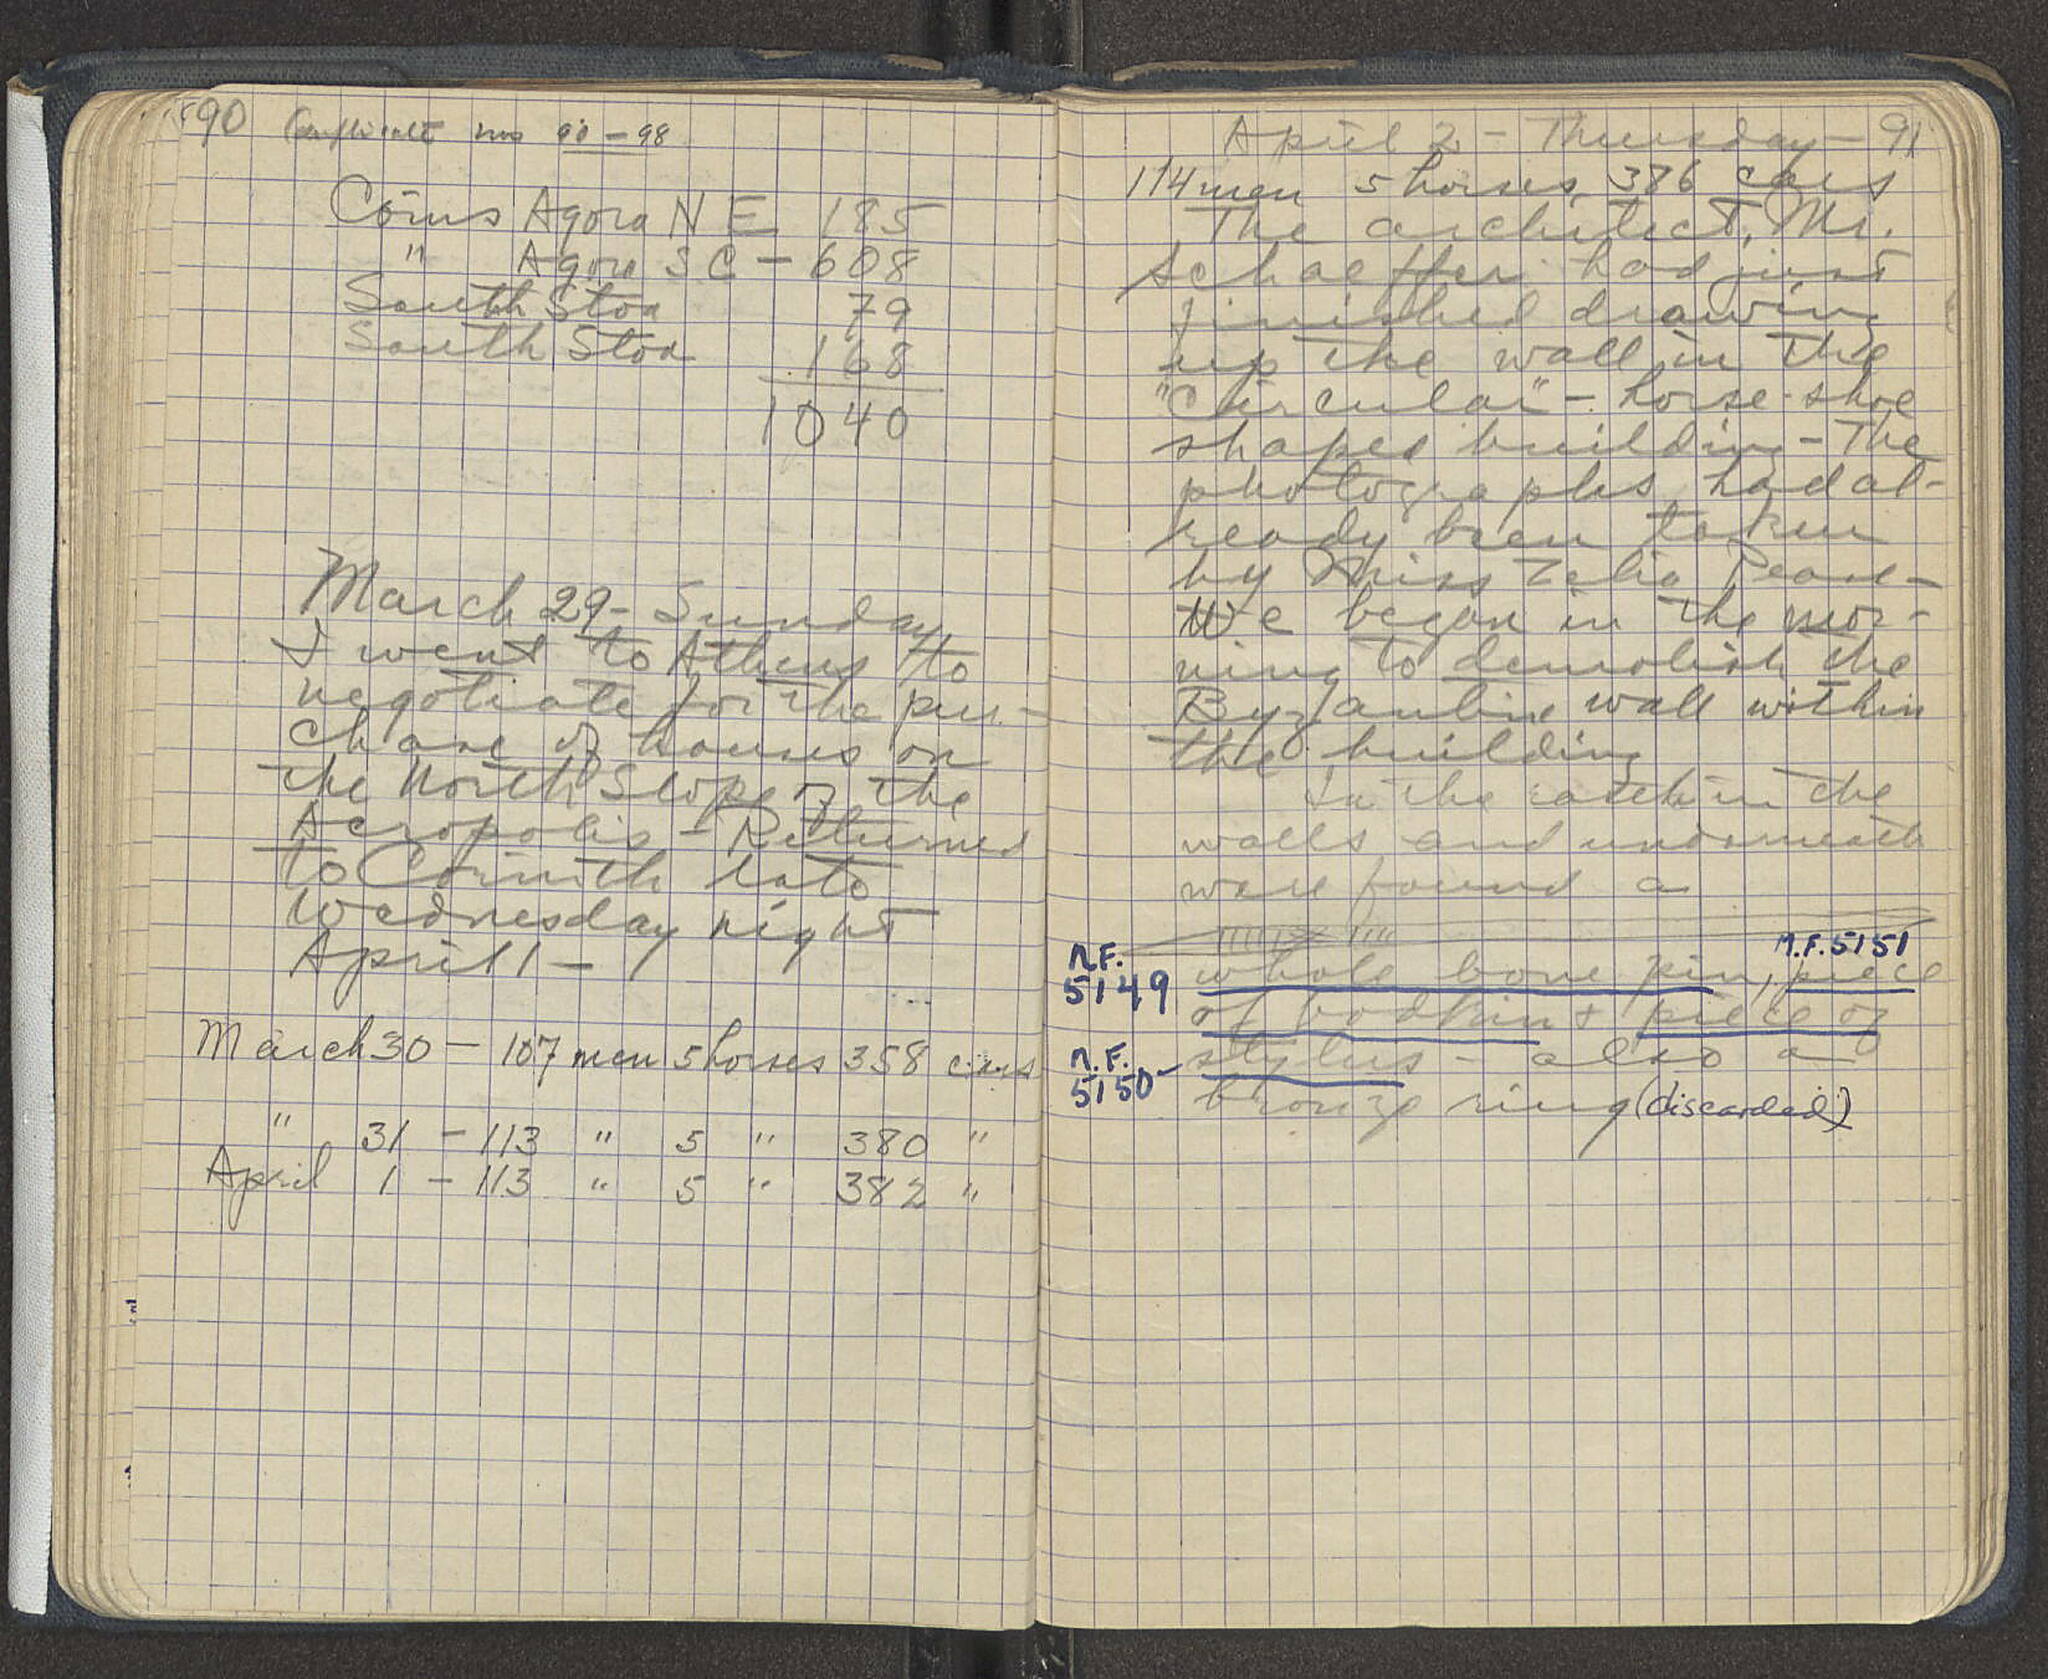 90 nos 90 - 98
Coins Agora N E 185
" Agora S C - 608
South Stoa 79
South Stoa 168
1040
March 29 - Sunday
I went to Athens to
negotiate for the pur-
chase of houses on
the North Slope of the
Acropolis - Returned
to Corinth late
Wednesday night
April 1 -
March 30 - 107 men 5 horses 358 cars
" 31 - 113 " 5 " 380 "
April 1 - 113 " 5 " 382 "
April 2 - Thursday - 91
114 men 5 horses 386 cars
The architect, Mr.
Schaeffer had just
finished drawing
up the wall in the
"Circular" - horse-shoe
shaped building - The
photographs had al-
ready been taken
by Miss Zelia Pease -
We began in the mor-
ning to demolish the
Byzantine wall within
the building
In the earth in the
walls and underneath
were found a
M.F. 5149
M.F. 5151
whole bone pin, piece
of bodkin & piece of
M.F. 5150 -
stylus - also a
bronze ring (discarded)